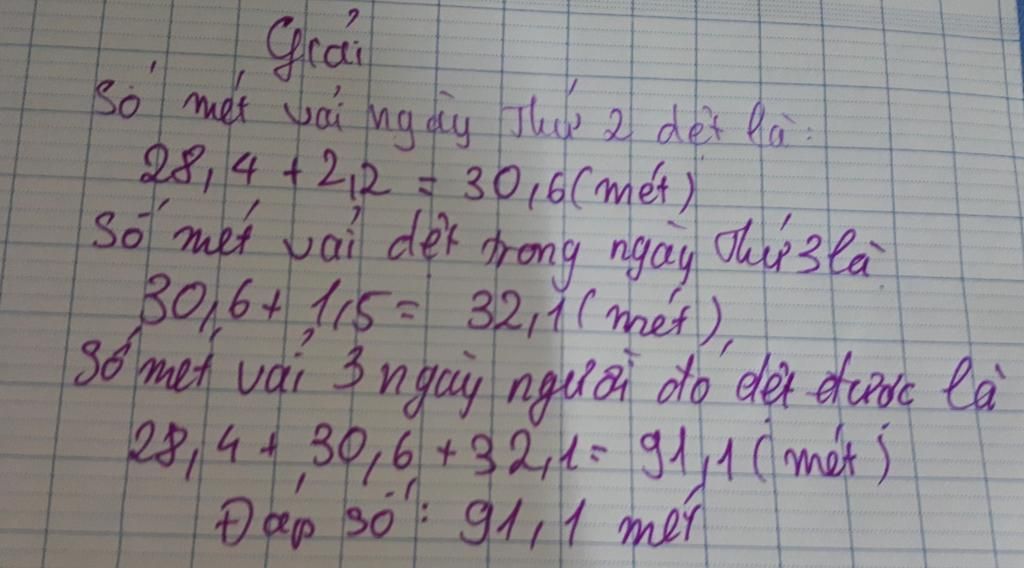 Giải
Số mét vải ngày thứ 2 dệt là:
28,4 + 2,2 = 30,6 (mét)
Số mét vải dệt trong ngày thứ 3 là
30,6 + 1,5 = 32,1 (mét),
Số mét vải 3 ngày người đó dệt được là
28,4 + 30,6 + 32,1 = 91,1 (mét)
Đáp số: 91,1 mét